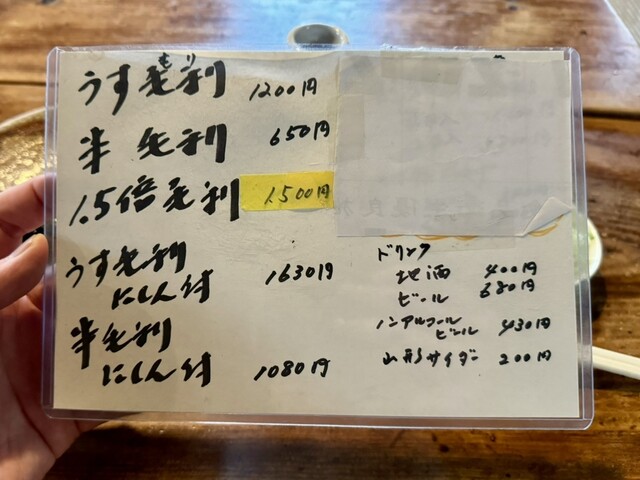 もり
うす毛利 1200円
半毛利 650円
1.5倍毛利 1500円
うす毛利
にしん付 1630円
半毛利
にしん付 1080円
ドリンク
地酒 400円
ビール 680円
ノンアルコール
ビール 430円
山形サイダー 200円